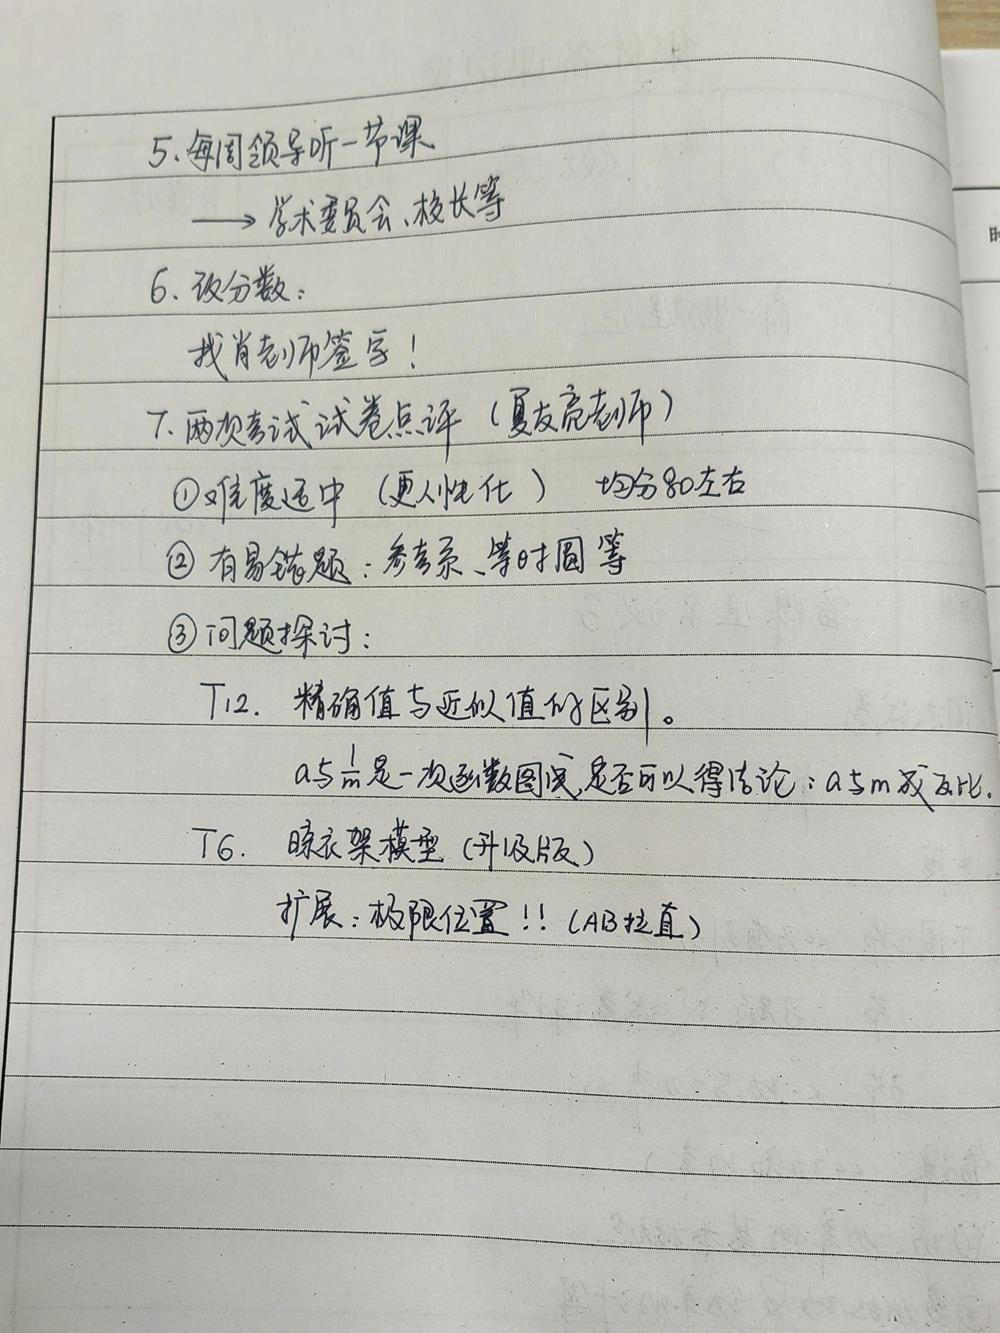 5、每周领导听一节课
→ 学术委员会、校长等
6、改分数：
找肖老师签字！
7、两次考试试卷点评（夏友亮老师）
①难度适中（更人性化） 均分80左右
②有易错题：参考系、等时圆等
③问题探讨：
T12. 精确值与近似值的区别。
a与1/m是一次函数图像，是否可以得结论：a与m成反比.
T6. 晾衣架模型（升级版）
扩展：极限位置！！（AB拉直）
时